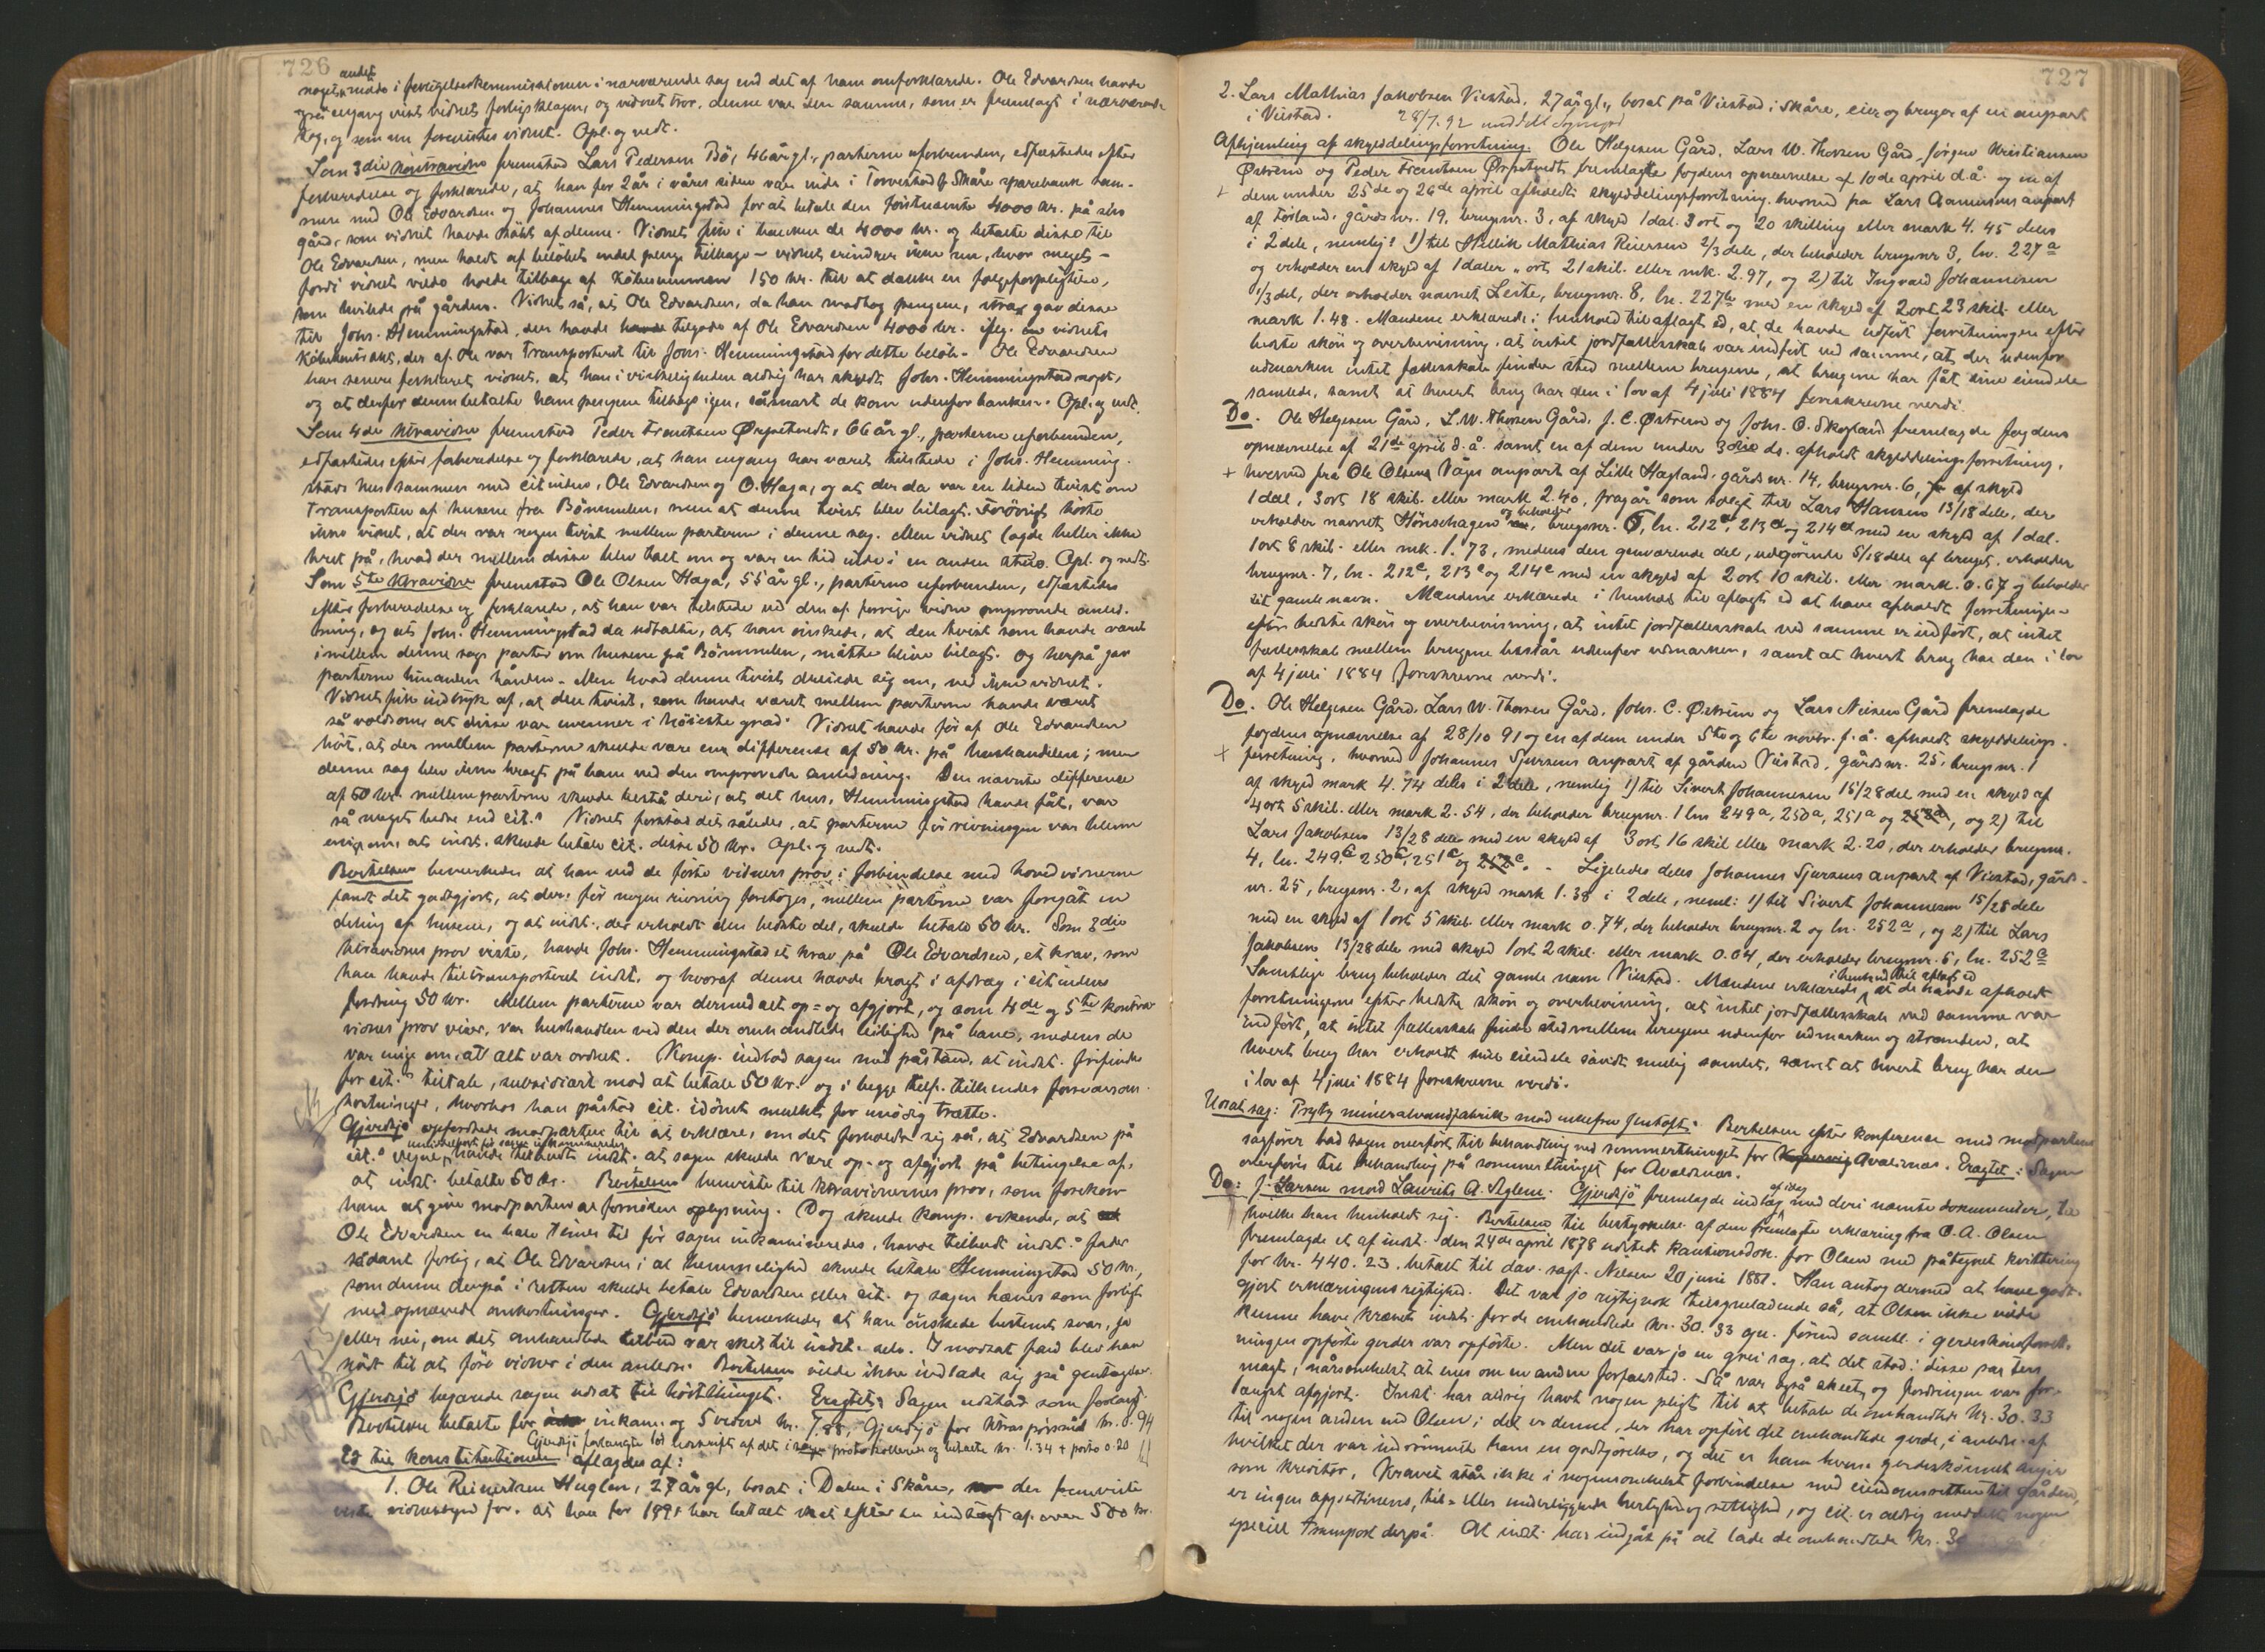 726
andet
noget mødo i forligelseskommissionen i nærværende sag end det af ham omforklarede. Ole Edvardsen havde
også engang vist vidnet forligsklagen, og vidnet tror, denne var den samme, som er fremlagt i nærværende
sag, og som nu forevistes vidnet. Opl. og vedt.
Som 3die kontravidne fremstod Lars Pedersen Bö, 46 år gl., parterne uforbunden, edfæstedes efter
forberedelse og forklarede, at han for 2 år i våres siden var inde i Torvestad & Skåre sparebank sam-
men med Ole Edvardsen og Johannes Hemmingstad for at betale den førstnævnte 4000 kr. på sin
gård, som vidnet havde kjöbt af denne. Vidnet fik i banken de 4000 kr. og betalte disse til
Ole Edvardsen, men holdt af beløbet endel penge tilbage – vidnet erindrer ikke nu, hvor meget –
fordi vidnet vilde holde tilbage af köbesummen 150 kr. til at dække en følgeforpligtelse,
som hvilede på gården. Vidnet så, at Ole Edvardsen, da han modtog pengene, strax gav disse
til Johs. Hemmingstad, der havde tilgode af Ole Edvardsen 4000 kr. ifølg. vidnets
köbekontrakt, der af Ole var transporteret til Johs. Hemmingstad for dette beløb. Ole Edvardsen
har senere forklaret vidnet, at han i virkeligheden aldrig har skyldt Johs. Hemmingstad noget,
og at derfor denne betalte ham pengene tilbage igen, såsnart de kom udenfor banken. Opl. og vedt.
Som 4de ktravidne fremstod Peder Frantsen Ørpetvedt, 66 år gl., parterne uforbunden,
edfæstedes efter forberedelse og forklarede, at han engang har været tilstede i Johs. Hemming-
stads hus sammen med citinden, Ole Edvardsen og O. Haga, og at der da var en liden tvist om
transporten af husene fra Bömmelen, men at denne tvist blev bilagt. Forövrigt hörte
ikke vidnet, at der var nogen tvist mellem parterne i denne sag. Men vidnet lagde heller ikke
hret på, hvad der mellem disse blev talt om og var en tid ude i en anden stue. Opl. og vedt.
Som 5te ktravidne fremstod Ole Olsen Haga, 55 år gl., parterne uforbunden, edfæstedes
efter forberedelse og forklarede, at han var tilstede ved den af forrige vidne omprovede anled-
ning, og at Johs. Hemmingstad da udtalte, at han önskede, at den tvist som havde været
imellem denne sags parter om husene på Bömmelen, måtte blive bilagt. Og herpå gav
parterne hinanden hånden. Men hvad denne tvist dreiede sig om, ved ikke vidnet.
Vidnet fik indtryk af, at den tvist, som havde været mellem parterne havde været
så voldsom at disse var uvenner i höieste grad. Vidnet havde för af Ole Edvardsen
hört, at der mellem parterne skulde være en difference af 50 kr. på hushandelen; men
denne sag blev ikke bragt på bane ved den omprovede anledning. Den nævnte difference
af 50 kr. mellem parterne skulde bestå deri, at det hus, Hemmingstad havde fåt, var
så meget bedre end cit.s Vidnet forstod det således, at parterne för rivningen var blevne
enige om, at indst. skulde betale cit. disse 50 kr. Opl. og vedt.
Bertelsen bemærkede at han ved de förte vidners prov i forbindelse med hovedvidnerne
fandt det godtgjort, at der, för nogen rivning foretoges, mellem parterne var foregåt en
deling af husene, og at indst., der erholdt den bedste del, skulde betale 50 kr. Som 3die
ktravidnes prov viste, havde Johs. Hemmingstad et krav på Ole Edvardsen, et krav, som
han havde tiltransporteret indst. og hvoraf denne havde bragt i afdrag i citindens
fordring 50 kr. Mellem parterne var dermed alt op- og afgjort, og som 4de og 5te kontra
vidnes prov viser, var hushandlen ved den der omhandlede leilighed på bane, medens de
var enige om, at alt var ordnet. Komp. indlod sagen med påstand, at indst. frifindes
for cit.s tiltale, subsidiært mod at betale 50 kr. og i begge tilf. tilkendes forsvarsom-
kostninger, hvorhos han påstod cit. idömt mulkt for unödig trætte.
Gjerdsjö opfordrede modparten til at erklære, om det forholdt sig så, at Edvardsen på
umiddelbart för sagen inkamineredes
cit.s vegne havde tilbudt indst. at sagen skulde være op- og afgjort på betingelse af,
at indst. betalte 50 kr. Bertelsen henviste til ktravidnernes prov, som forekom
ham at give modparten al fornöden oplysning. Dog skulde komp. erkende, at
Ole Edvardsen en halv times tid för sagen inkamineredes, havde tilbudt indst.s fader
sådant forlig, at Ole Edvardsen i al hemmelighed skulde betale Hemmingstad 50 kr.,
som denne derpå i retten skulde betale Edvardsen eller cit. og sagen hæves som forligt
med ophævede omkostninger. Gjerdsjö bemærkede, at han önskede bestemt svar, ja
eller nei, om det omhandlede tilbud var sket til indst. selv. I modsat fald blev han
nödt til at före vidner i den anledn. Bertelsen vilde ikke indlade sig på gentagelser.
Gjerdsjö begærede sagen udsat til hösttinget. Eragtet: Sagen udstod som forlangt
Bertelsen betalte for inkam. og 5 vidner kr. 7.88, Gjerdsjö for ktrasp.vidnesf. kr. 0.94
Gjerdsjö forlangte lös udskrift af det i protokollerne og betalte kr. 1.34 + porto 0.20
Ed til konstitutionen aflagdes af:
1. Ole Reinertsen Huglen, 27 år gl., bosat i Dalen i Skåre, der fremviste
vidnesbyrd for, at han for 1891 har betalt skat efter en indtægt af over 500 kr.
727
2. Lars Mathias Jakobsen Viestad, 27 år gl., bosat på Viestad i Skåre, eier og bruger af en anpart
i Viestad.
28/7.92
Afhjemling af skylddelingsforretning. Ole Helgesen Gård, Lars W. Thorsen Gård, Jörgen Kristiansen
Östrem og Peder Frantsen Ørpetvedt fremlagde fogdens opnævnelse af 10de april d.å. og en af
+ dem under 25de og 26de april afholdt skylddelingsforretning, hvorved fra Lars Aamunsens anpart
af Førland, gårds nr. 19, brugsnr. 3, af skyld 1 dal. 3 ort og 20 skilling eller mark 4.45 deles
i 2 dele, nemlig: 1) til Hellik Mathias Reiersen 2/3 dele, der beholder brugsnr 3, ln. 227a
og erholder en skyld af 1 daler „ ort, 21 skil. eller mk. 2.97, og 2) til Ingvald Johannesen
1/3 del, der erholder navnet Leite, brugsnr. 8, ln. 227b med en skyld af 2 ort 23 skil. eller
mark 1.48. Mændene erklærede i henhold til aflagt ed, at de havde udfört forretningen efter
bedste skön og overbevisning, at intet jordfællesskab var indfört ved samme, at der udenfor
udmarken intet fællesskab finder sted mellem brugene, at brugene har fåt sine eiendele
samlede, samt at hvert brug har den i lov af 4 juli 1884 foreskrevne verdi.
Do. Ole Helgesen Gård, L. W. Thorsen Gård, J. C. Östrem og Johs. O. Skogland fremlagde fogdens
opnævnelse af 21de april d.å. samt en af dem under 3die ds. afholdt skylddelingsforretning,
+ hvorved fra Ole Olsens Vågs anpart af Lille Hagland, gårds nr. 14, brugsnr. 6, af skyld
1 dal., 3 ort 18 skil. eller mark 2.40, fragår som solgt til Lars Hansen 13/18 dele, der
og beholder
erholder navnet Hönschagen, brugsnr. 6, ln. 212d, 213d og 214d med en skyld af 1 dal.
1 ort 8 skil. eller mk. 1.73, medens den genværende del, udgörende 5/18 dele af bruget, erholder
brugsnr. 7, ln. 212e, 213e og 214e med en skyld af 2 ort 10 skil. eller mark. 0.67 og beholder
sit gamle navn. Mændene erklærede i henhold til aflagt ed at have afholdt forretningen
efter bedste skön og overbevisning, at intet jordfællesskab ved samme er indfört, at intet
fællesskab mellem brugene består udenfor udmarken, samt at hvert brug har den i lov
af 4 juli 1884 foreskrevne verdi.
Do. Ole Helgesen Gård, Lars W. Thorsen Gård, Johs. C. Östrem og Lars Nilsen Gård fremlagde
fogdens opnævnelse af 28/10 91 og en af dem under 5te og 6te novbr. f.å. afholdt skylddelings-
+ forretning, hvorved Johannes Sjursens anpart af gården Viestad, gårds nr. 25, brugs nr. 1
af skyld mark 4.74 deles i 2 dele, nemlig 1) til Sivert Johannesen 15/28 del med en skyld af
4 ort 5 skil. eller mark 2.54, der beholder brugsnr. 1 ln 249a, 250a, 251a og 252a, og 2) til
Lars Jakobsen 13/28 dele med en skyld af 3 ort 16 skil eller mark 2.20, der erholder brugsnr.
4, ln. 249c 250c, 251c og 252c. – Ligeledes deles Johannes Sjursens anpart af Viestad, gårds-
nr. 25, brugsnr. 2, af skyld mark 1.38 i 2 dele, neml: 1) til Sivert Johannesen 15/28 dele
med en skyld af 1 ort 5 skil. eller mark 0.74, der beholder brugsnr. 2 og ln. 252a, og 2) til Lars
Jakobsen 13/28 dele med skyld 1 ort 2 skil. eller mark 0.64, der erholder brugsnr. 5, ln. 252c
Samtlige brug beholder det gamle navn Viestad. Mændene erklærede
i henhold til aflagt ed
at de havde afholdt
forretningerne efter bedste skön og overbevisning, at intet jordfællesskab ved samme var
indfört, at intet fællesskab finder sted mellem brugene udenfor udmarken og stranden, at
hvert brug har erholdt sine eiendele såvidt mulig samlet, samt at hvert brug har den
i lov af 4 juli 1884 foreskrevne verdi.
Udsat sag: Prytz mineralvandfabrik mod enkefru Jentoft. Bertelsen efter konference med modpartens
sagförer bad sagen overfört til behandling ved sommerthinget for Avaldsnæs. Eragtet: Sagen
overföres til behandling på sommerthinget for Avaldsnæs.
Do: J. Larsen mod Laurits A. Aglen. Gjerdsjö fremlagde indlæg
af idag
med deri nævnte dokumenter, til
hvilke han henholdt sig. Bertelsen til bestyrkelse af den fremlagte erklæring fra O. A. Olsen
fremlagde et af indst. den 24de april 1878 udstedt kautionsdok. for Olsen med påtegnet kvittering
for kr. 440.23, betalt til dav. sagf. Nelsen 20 juni 1881. Han antog dermed at have godt-
gjort ermæringens rigtighed. Det var jo rigtignok tilsyneladende så, at Olsen ikke vilde
kunne have krævet indst. for de omhandlede kr. 30.33 gn. förend samtl. i gerdesskönsforret-
ningen opförte gerder var opförte. Men det var jo en grei sag, at det stod i disse parters
magt, nårsomhelst at enes om en anden forfaldstid. Så var også skeet, og fordringen var for-
længst afgjort. Indst. har aldrig havt nogen pligt til at betale de omhandlede kr. 30.33
til nogen anden end Olsen; det er denne, der har opfört det omhandlede gerde, i anledn. af
hvilket der var indrömmet ham en godtgörelse, og det er ham hvem gerdesskönnet angir
som kreditor. Kravet står ikke i nogensomhelst forbindelse med eiendomsretten til gården,
er ingen appertinens, til- eller underliggende herlighed og rettighed, og cit. er aldrig meddelt nogen
speciel transport derpå. At indst. har indgåt på at lade de omhandlede kr. 30